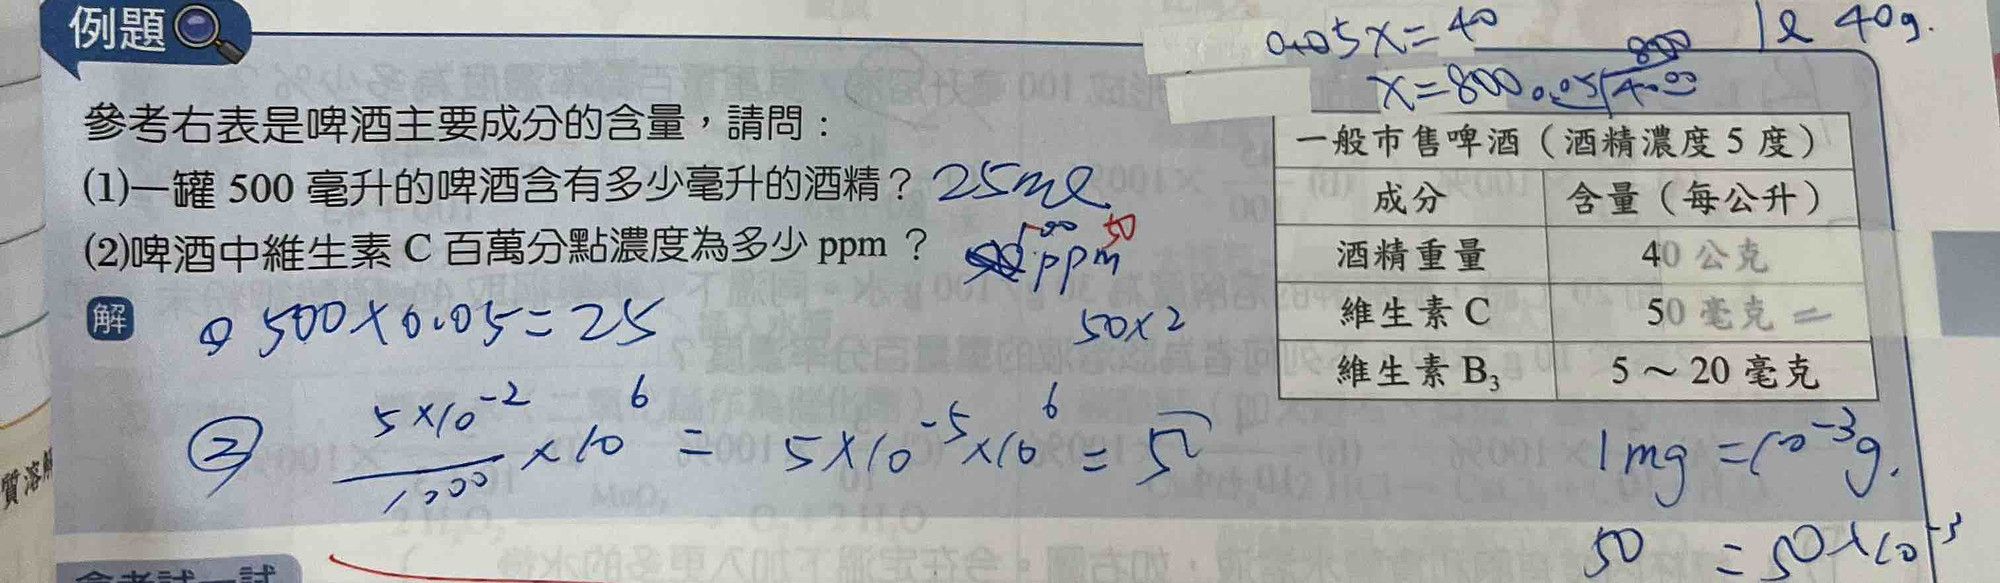 例題
0.05x=40
1ℓ 40g.
x=800
800
0.05 4000
參考右表是啤酒主要成分的含量，請問：
(1)一罐 500 毫升的啤酒含有多少毫升的酒精？ 25mℓ
(2)啤酒中維生素 C 百萬分點濃度為多少 ppm ？ ppm 50
一般市售啤酒（酒精濃度 5 度）
成分 含量（每公升）
酒精重量 40 公克
維生素 C 50 毫克
維生素 B₃ 5～20 毫克
解
500×0.05=25
50×2
② 5×10⁻²/1000 ×10⁶ = 5×10⁻⁵×10⁶ =
1mg=10⁻³g.
50 = 50×10⁻³